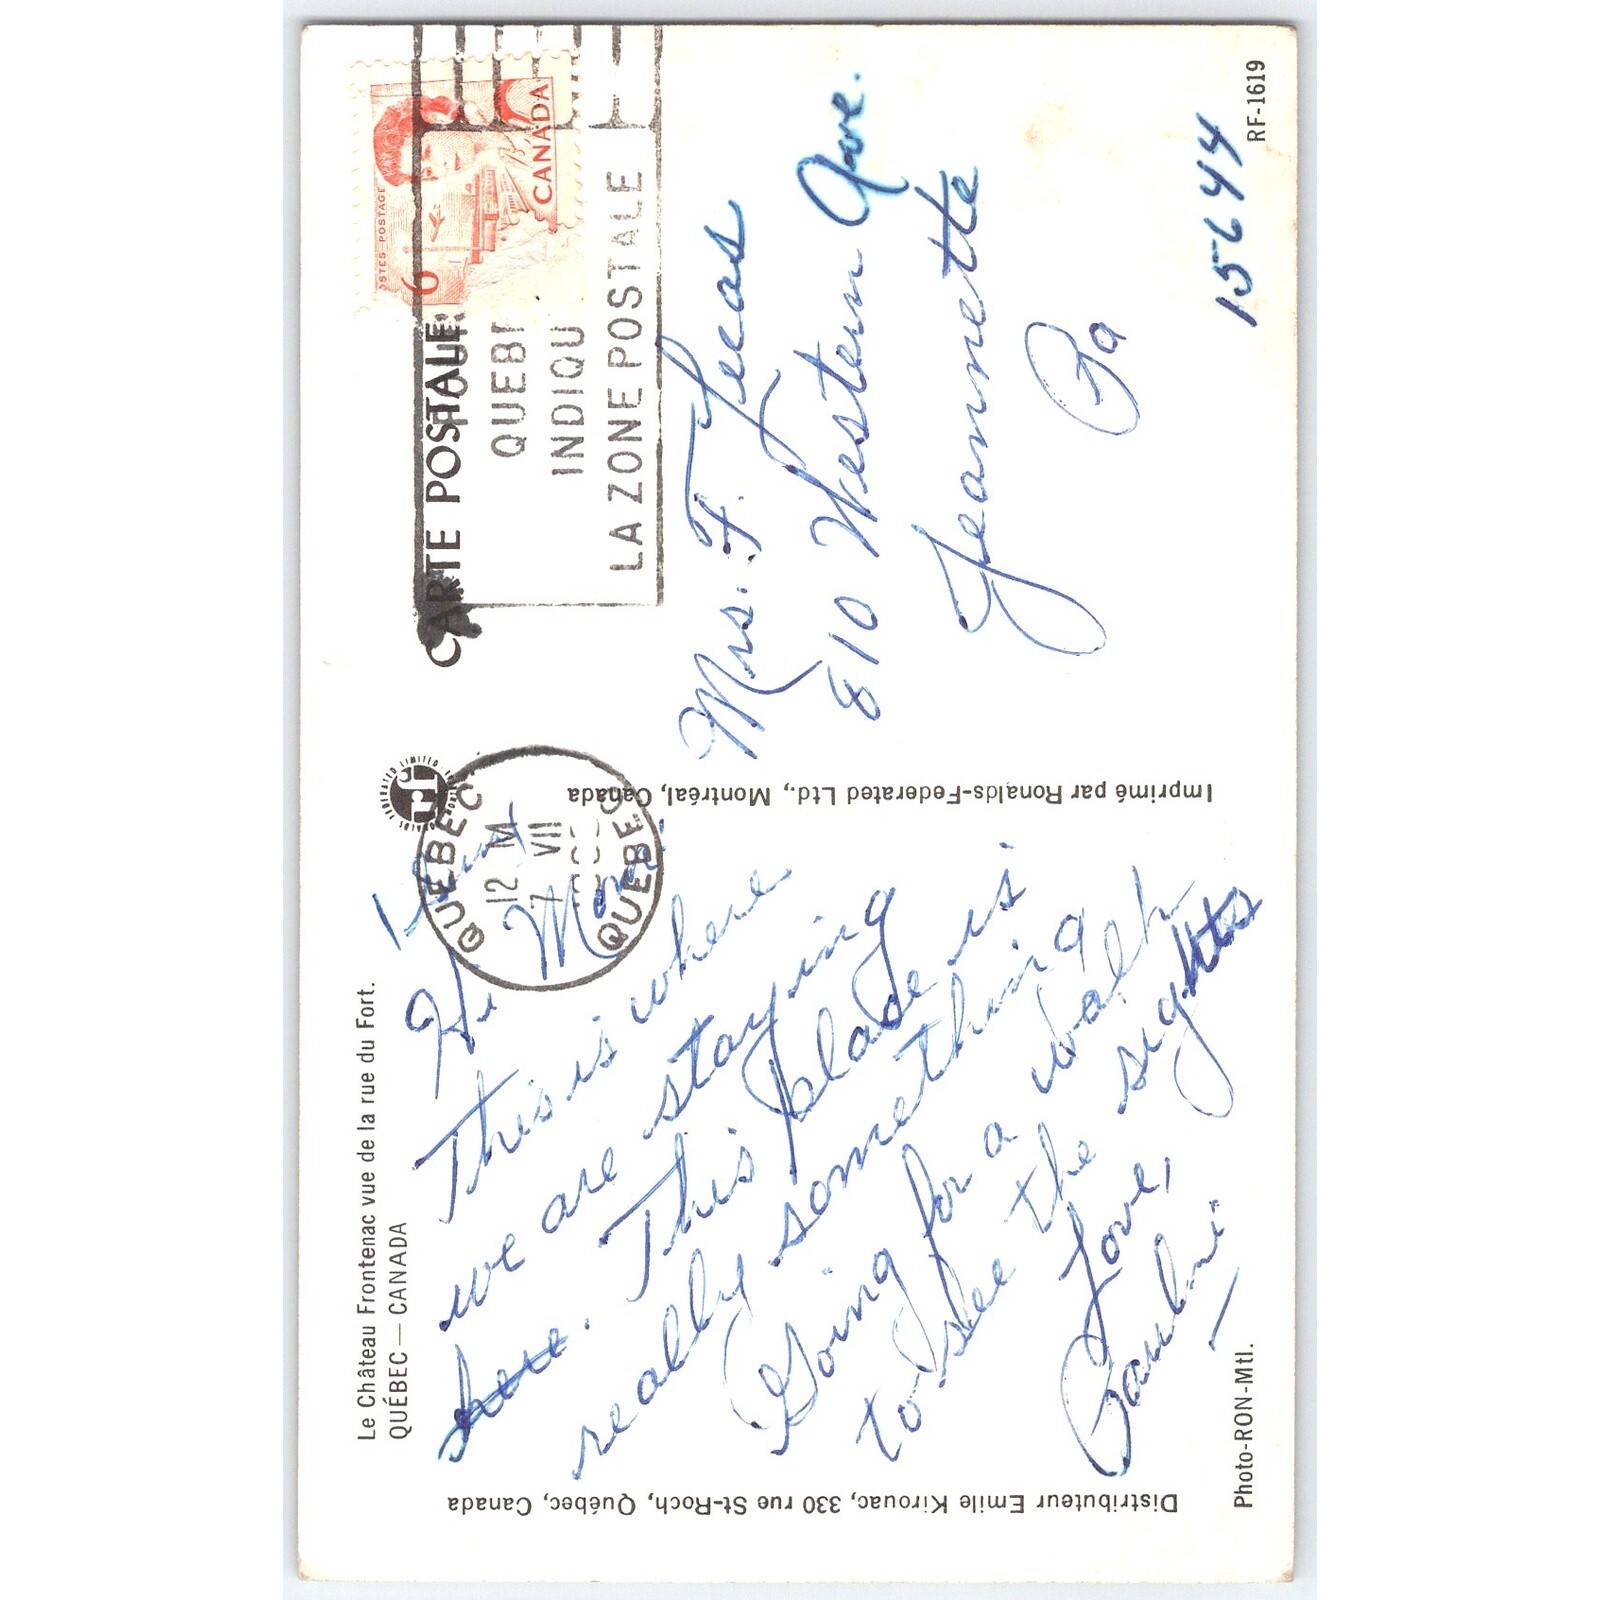 Le Château Frontenac vue de la rue du Fort.
QUÉBEC — CANADA
Hi Aunt
Mary
This is where
we are staying
here. This place is
really something
Going for a walk
to see the sights
Love,
Pauline
Distributeur Emile Kirouac, 330 rue St-Roch, Québec, Canada
Photo-RON-Mtl.
RONALDS FEDERATED LIMITED
QUEBEC
12 M
7 VII
QUEBEC
Imprimé par Ronalds-Federated Ltd., Montréal, Canada
CARTE POSTALE
QUEBE
INDIQU
LA ZONE POSTALE
POSTES-POSTAGE
6
CANADA
Mrs. F.
810 Western Ave.
Jeannette
Pa
15644
RF-1619